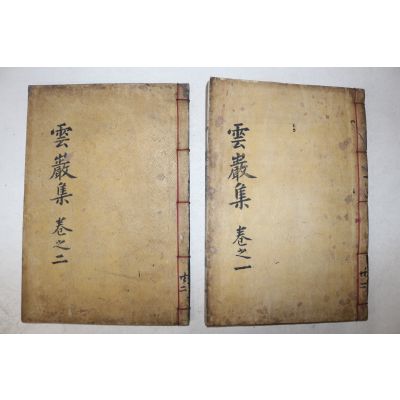 雲巖集 卷之一
雲巖集 卷之二
共二